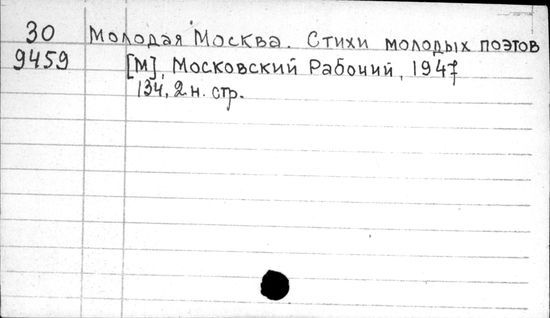 30 Молодая Москва. Стихи молодых поэтов
9459 [М], Московский Рабочий, 1947
134, 2 н. стр.